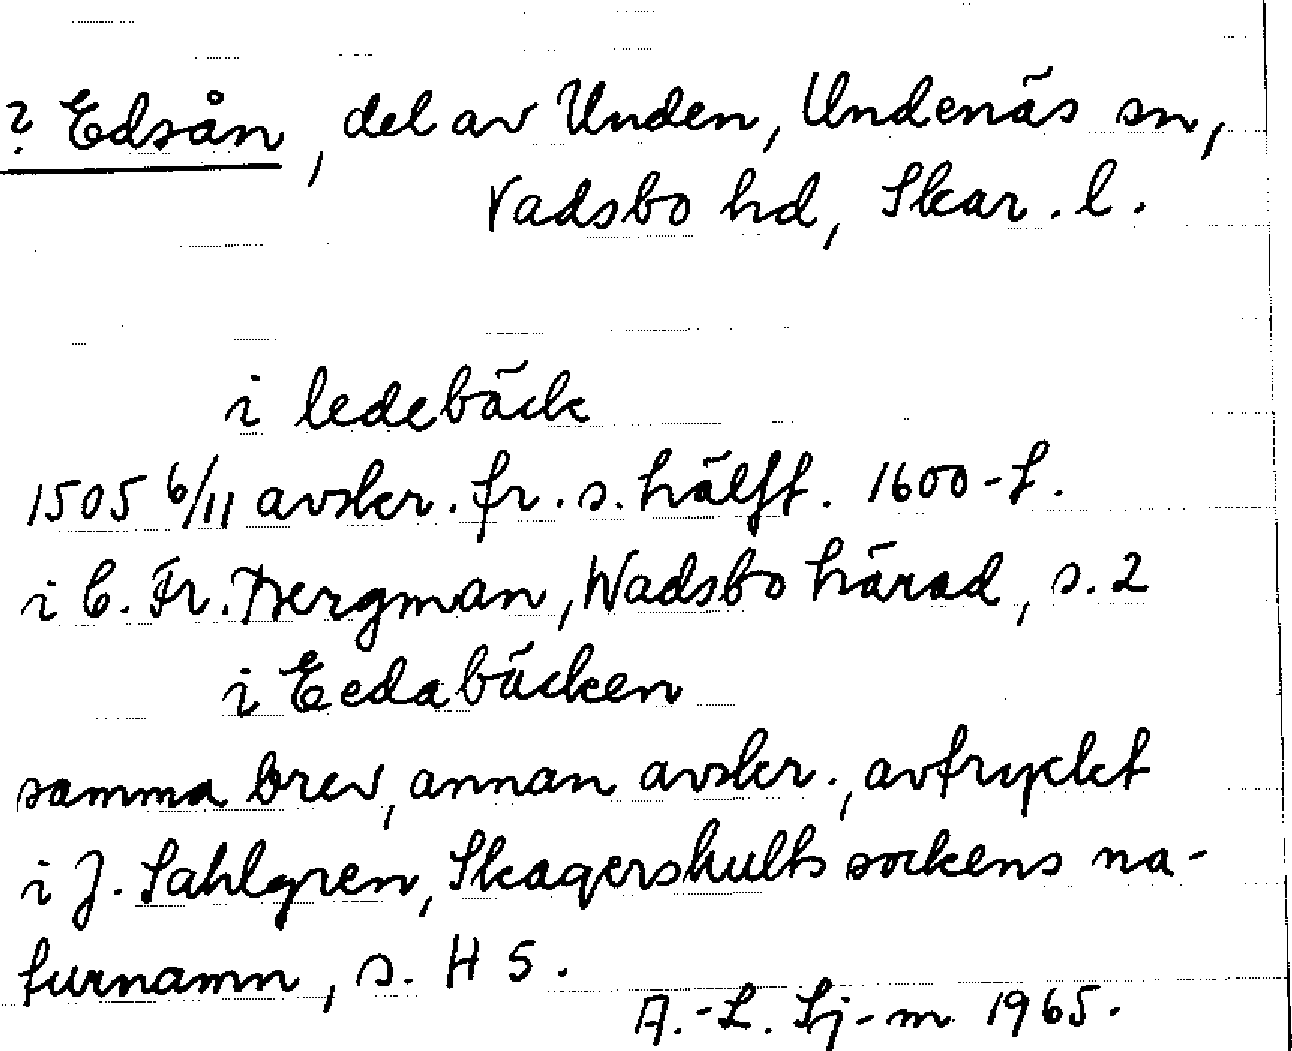 ? Edsån, del av Unden, Undenäs sn,
Vadsbo hd, Skar. l.
i ledebäck
1505 6/11 avskr. fr. s. hälft. 1600-t.
i C. Fr. Bergman, Wadsbo härad, s. 2
i Eedabäcken
samma brev, annan avskr., avtryckt
i J. Sahlgren, Skagershults sockens na-
turnamn, s. H 5.
A.-L. Lj-m 1965.